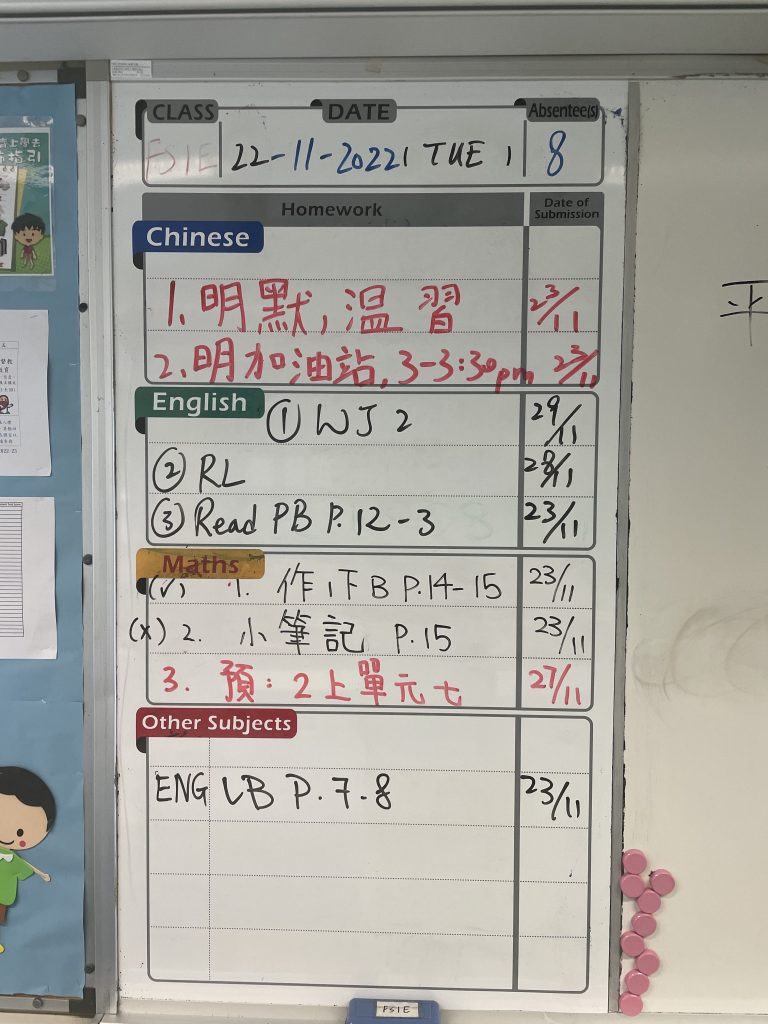 CLASS DATE Absentee(s)
FS1E 22-11-2022, TUE, 8
Homework Date of Submission
Chinese
1. 明默, 温習 23/11
2. 明加油站, 3-3:30pm 23/11
English
① WJ 2 29/11
② RL 28/11
③ Read PB P. 12-3 23/11
Maths
(✓) 1. 作, 下B P.14-15 23/11
(x) 2. 小筆記 P.15 23/11
3. 預: 2上單元七 27/11
Other Subjects
ENG VB P. 7.8 23/11
FS1E
平
指引
2022/23